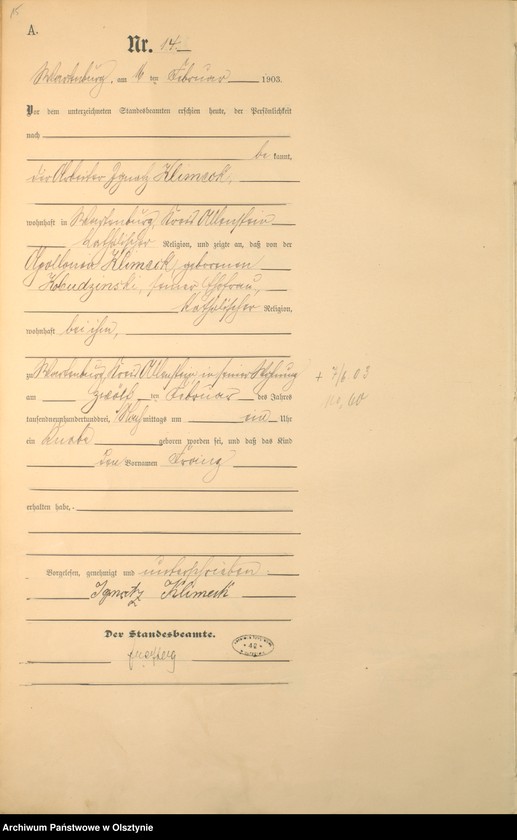 15
A.
Nr. 14.
Wartenburg, am 16 ten Februar 1903.
Vor dem unterzeichneten Standesbeamten erschien heute, der Persönlichkeit
nach
be kannt,
der Arbeiter Ignatz Klimeck,
wohnhaft in Wartenburg, Kreis Allenstein
katholischer Religion, und zeigte an, daß von der
Klimeck, geborenen
seiner Ehefrau,
katholischer Religion,
wohnhaft bei ihm,
in Wartenburg, Kreis Allenstein in seiner Wohnung
am zwölf ten Februar des Jahres
tausendneunhundertunddrei, Nachmittags um ein Uhr
ein Knabe geboren worden sei, und daß das Kind
den Vornamen Franz
erhalten habe.
Vorgelesen, genehmigt und unterschrieben
Ignatz Klimeck
Der Standesbeamte.
+ 7/6 03
No. 60
Archiwum Państwowe w Olsztynie